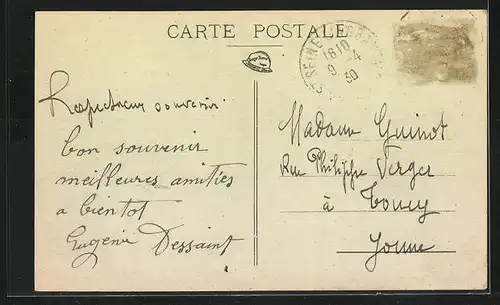 CARTE POSTALE
1810
9-4
30
Respectueux souvenir.
bon souvenir
meilleures amities
a bientot
Eugenie Dessaint
Madame Guinot
Rue Philippe Verger
à Toucy
Yonne